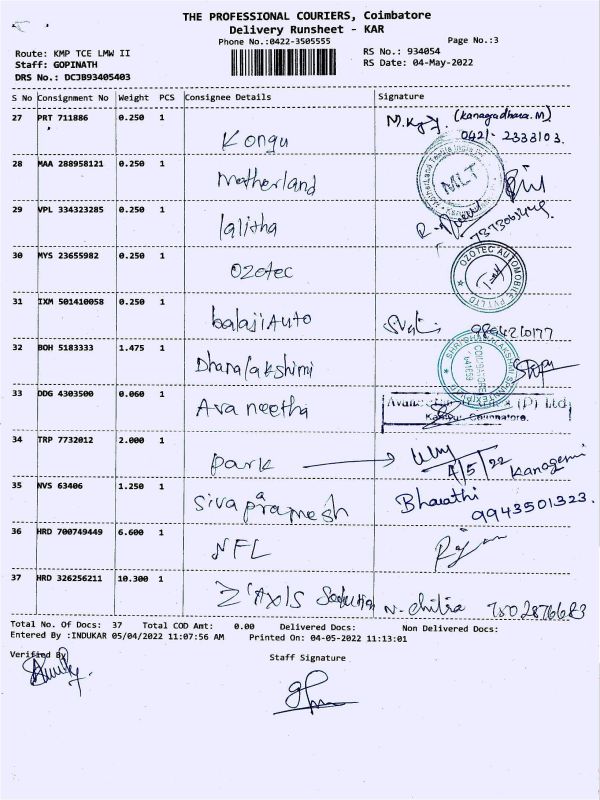 THE PROFESSIONAL COURIERS, Coimbatore
Delivery Runsheet - KAR
Phone No.:0422-3505555
Page No.:3
Route: KMP TCE LMW II
RS No.: 934054
Staff: GOPINATH
RS Date: 04-May-2022
DRS No.: DCJB93405403
S No Consignment No Weight PCS Consignee Details Signature
27 PRT 711886 0.250 1 Kongu (Kanagadhara.M)
0421- 2333103.
28 MAA 288958121 0.250 1 Motherland MLT
29 VPL 334323285 0.250 1 lalitha
30 MYS 23655982 0.250 1 Ozotec OZOTEC AUTOMOBILE PVT LTD
31 IXM 501410058 0.250 1 balaji Auto
32 BOH 5183333 1.475 1 Dhanalakshimi COIMBATORE
33 DDG 4303500 0.060 1 Avaneetha (P) Ltd
Coimbatore.
34 TRP 7732012 2.000 1 park 4/5/22
35 NVS 63406 1.250 1 Siva paramesh Bharathi
9943501323.
36 HRD 700749449 6.600 1 NFL Rajan
37 HRD 326256211 10.300 1 Z'Axis Solution N. Chitra 7502876683
Total No. Of Docs: 37 Total COD Amt: 0.00 Delivered Docs: Non Delivered Docs:
Entered By :INDUKAR 05/04/2022 11:07:56 AM Printed On: 04-05-2022 11:13:01
Verified By
Staff Signature